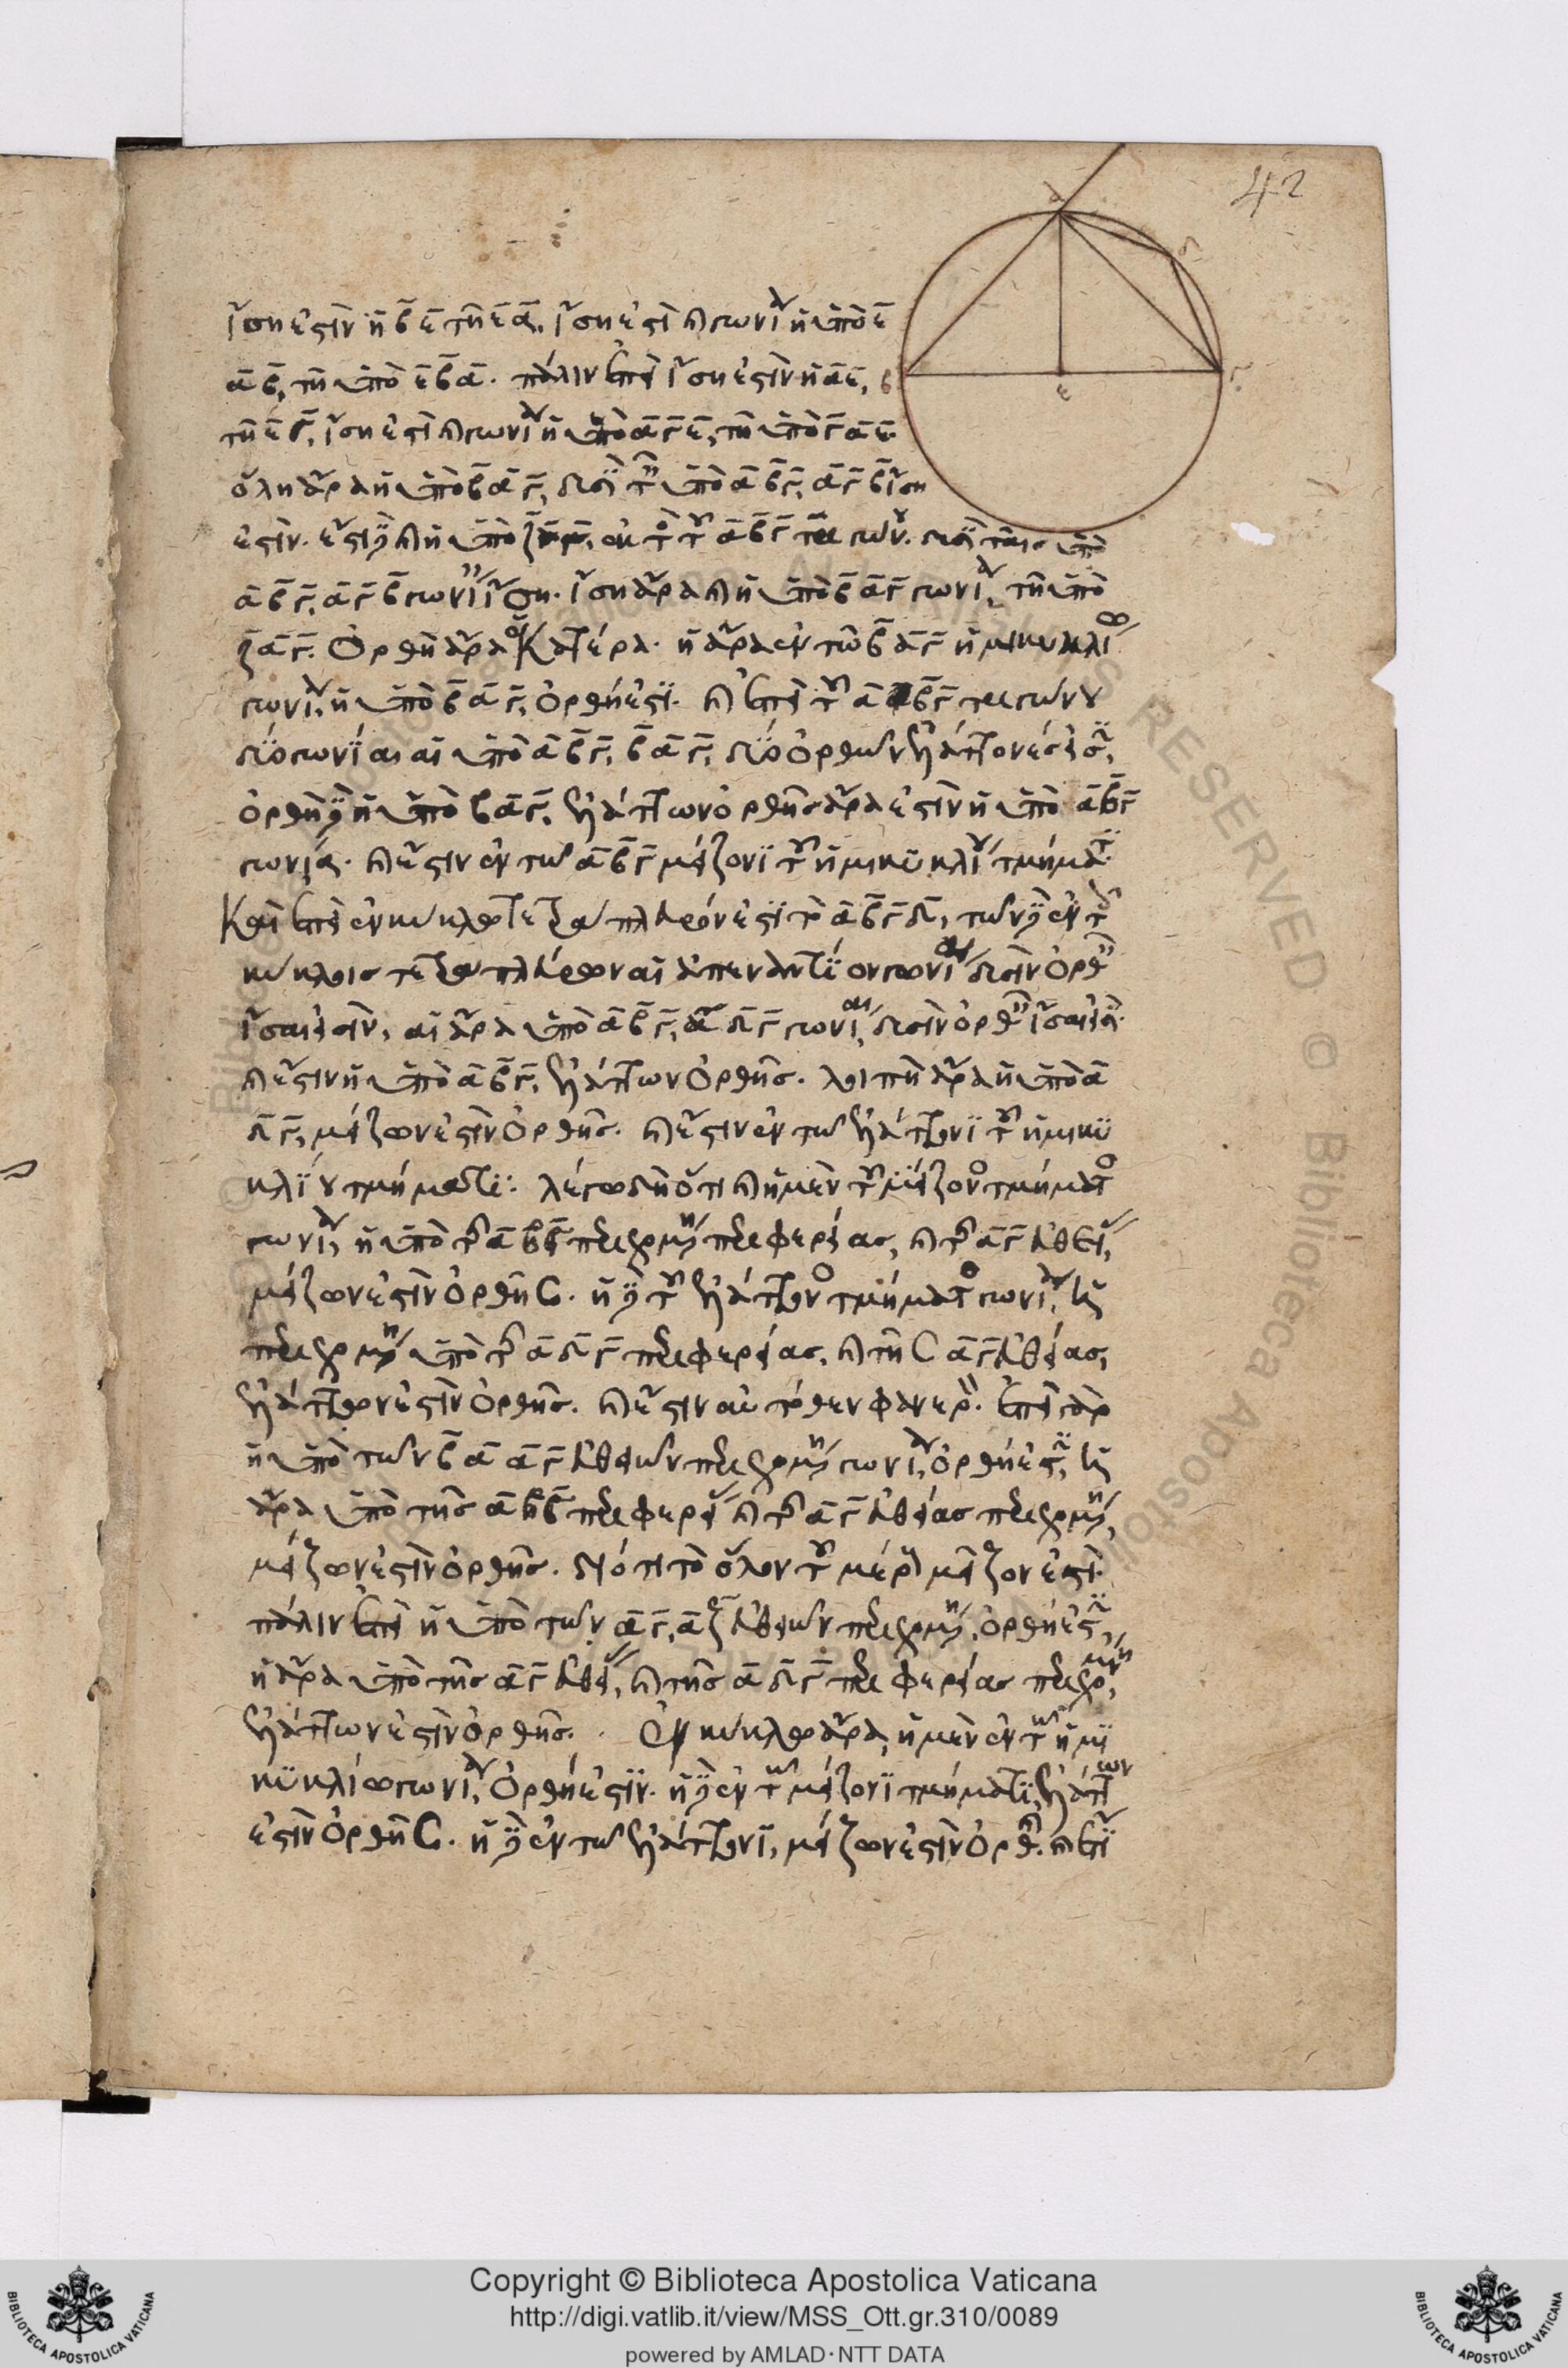 42
ἴση ἐστὶν ἡ β̅ε̅ τῇ ε̅α̅, ἴση ἐστὶ καὶ γωνία ἡ ὑπὸ ε̅
α̅β̅, τῇ ὑπὸ ε̅β̅α̅. πάλιν ἐπεὶ ἴση ἐστὶν ἡ α̅ε̅,
τῇ ε̅γ̅, ἴση ἐστὶ καὶ γωνία ἡ ὑπὸ α̅γ̅ε̅, τῇ ὑπὸ γ̅α̅ε̅.
ὅλη ἄρα ἡ ὑπὸ β̅α̅γ̅, δυσὶ ταῖς ὑπὸ α̅β̅γ̅, α̅γ̅β̅ ἴση
ἐστίν. ἔστι δὲ καὶ ἡ ὑπὸ ἐκτὸς τοῦ α̅β̅γ̅ τριγώνου. δυσὶ ταῖς ὑπὸ
α̅β̅γ̅, α̅γ̅β̅ γωνίαις ἴση. ἴση ἄρα καὶ ἡ ὑπὸ β̅α̅γ̅ γωνία, τῇ ὑπὸ
ζ̅α̅γ̅. ὀρθὴ ἄρα ἑκατέρα. ἡ ἄρα ἐν τῷ β̅α̅γ̅ ἡμικυκλίῳ
γωνία, ἡ ὑπὸ β̅α̅γ̅, ὀρθή ἐστι. καὶ ἐπεὶ τοῦ α̅β̅γ̅ τριγώνου
δύο γωνίαι αἱ ὑπὸ α̅β̅γ̅, β̅α̅γ̅, δύο ὀρθῶν ἐλάττονές εἰσιν,
ὀρθὴ δὲ ἡ ὑπὸ β̅α̅γ̅, ἐλάττων ὀρθῆς ἄρα ἐστὶν ἡ ὑπὸ α̅β̅γ̅
γωνία. καὶ ἔστιν ἐν τῷ α̅β̅γ̅ μείζονι τοῦ ἡμικυκλίου τμήματι.
Καὶ ἐπεὶ ἐν κύκλῳ τετράπλευρόν ἐστι τὸ α̅β̅γ̅δ̅, τῶν δὲ ἐν τοῖς
κύκλοις τετραπλεύρων αἱ ἀπεναντίον γωνίαι δυσὶν ὀρθαῖς
ἴσαι εἰσίν, αἱ ἄρα ὑπὸ α̅β̅γ̅, α̅δ̅γ̅ γωνίαι, δυσὶν ὀρθαῖς ἴσαι εἰσί.
καὶ ἔστιν ἡ ὑπὸ α̅β̅γ̅, ἐλάττων ὀρθῆς. λοιπὴ ἄρα ἡ ὑπὸ α̅
δ̅γ̅, μείζων ἐστὶν ὀρθῆς. καὶ ἔστιν ἐν τῷ ἐλάττονι τοῦ ἡμικυ
κλίου τμήματι: λέγω δὴ ὅτι καὶ ἡ μὲν τοῦ μείζονος τμήματος
γωνία, ἡ ὑπὸ τῆς α̅β̅γ̅ περιεχομένη περιφερείας, καὶ τῆς α̅γ̅ εὐθείας,
μείζων ἐστὶν ὀρθῆς. ἡ δὲ τοῦ ἐλάττονος τμήματος γωνία, ἡ
περιεχομένη ὑπὸ τῆς α̅δ̅γ̅ περιφερείας, καὶ τῆς α̅γ̅ εὐθείας,
ἐλάττων ἐστὶν ὀρθῆς. καὶ ἔστιν αὐτόθεν φανερόν. ἐπεὶ γὰρ
ἡ ὑπὸ τῶν β̅α̅ α̅γ̅ εὐθειῶν περιεχομένη γωνία, ὀρθή ἐστιν, ἡ
ἄρα ὑπὸ τῆς α̅β̅γ̅ περιφερείας καὶ τῆς α̅γ̅ εὐθείας περιεχομένη,
μείζων ἐστὶν ὀρθῆς. διότι τὸ ὅλον τοῦ μέρους μεῖζον ἐστί.
πάλιν ἐπεὶ ἡ ὑπὸ τῶν α̅γ̅, α̅ζ̅ εὐθειῶν περιεχομένη, ὀρθή ἐστιν,
ἡ ἄρα ὑπὸ τῆς α̅γ̅ εὐθείας, καὶ τῆς α̅δ̅γ̅ περιφερείας περιεχομένη,
ἐλάττων ἐστὶν ὀρθῆς. Ἐν κύκλῳ ἄρα, ἡ μὲν ἐν τῷ ἡμι
κυκλίῳ γωνία, ὀρθή ἐστιν. ἡ δὲ ἐν τῷ μείζονι τμήματι, ἐλάττων
ἐστὶν ὀρθῆς. ἡ δὲ ἐν τῷ ἐλάττονι, μείζων ἐστὶν ὀρθῆς. καὶ ἔτι
α
δ
β
γ
ε
Copyright © Biblioteca Apostolica Vaticana
http://digi.vatlib.it/view/MSS_Ott.gr.310/0089
powered by AMLAD·NTT DATA
BIBLIOTECA APOSTOLICA VATICANA
BIBLIOTECA APOSTOLICA VATICANA